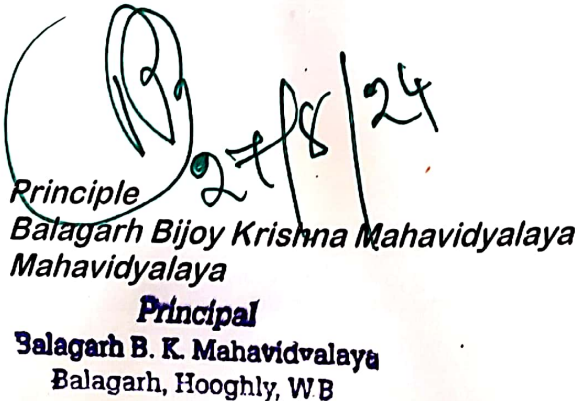 27/8/24
Principle
Balagarh Bijoy Krishna Mahavidyalaya
Mahavidyalaya
Principal
Balagarh B. K. Mahavidyalaya
Balagarh, Hooghly, W.B